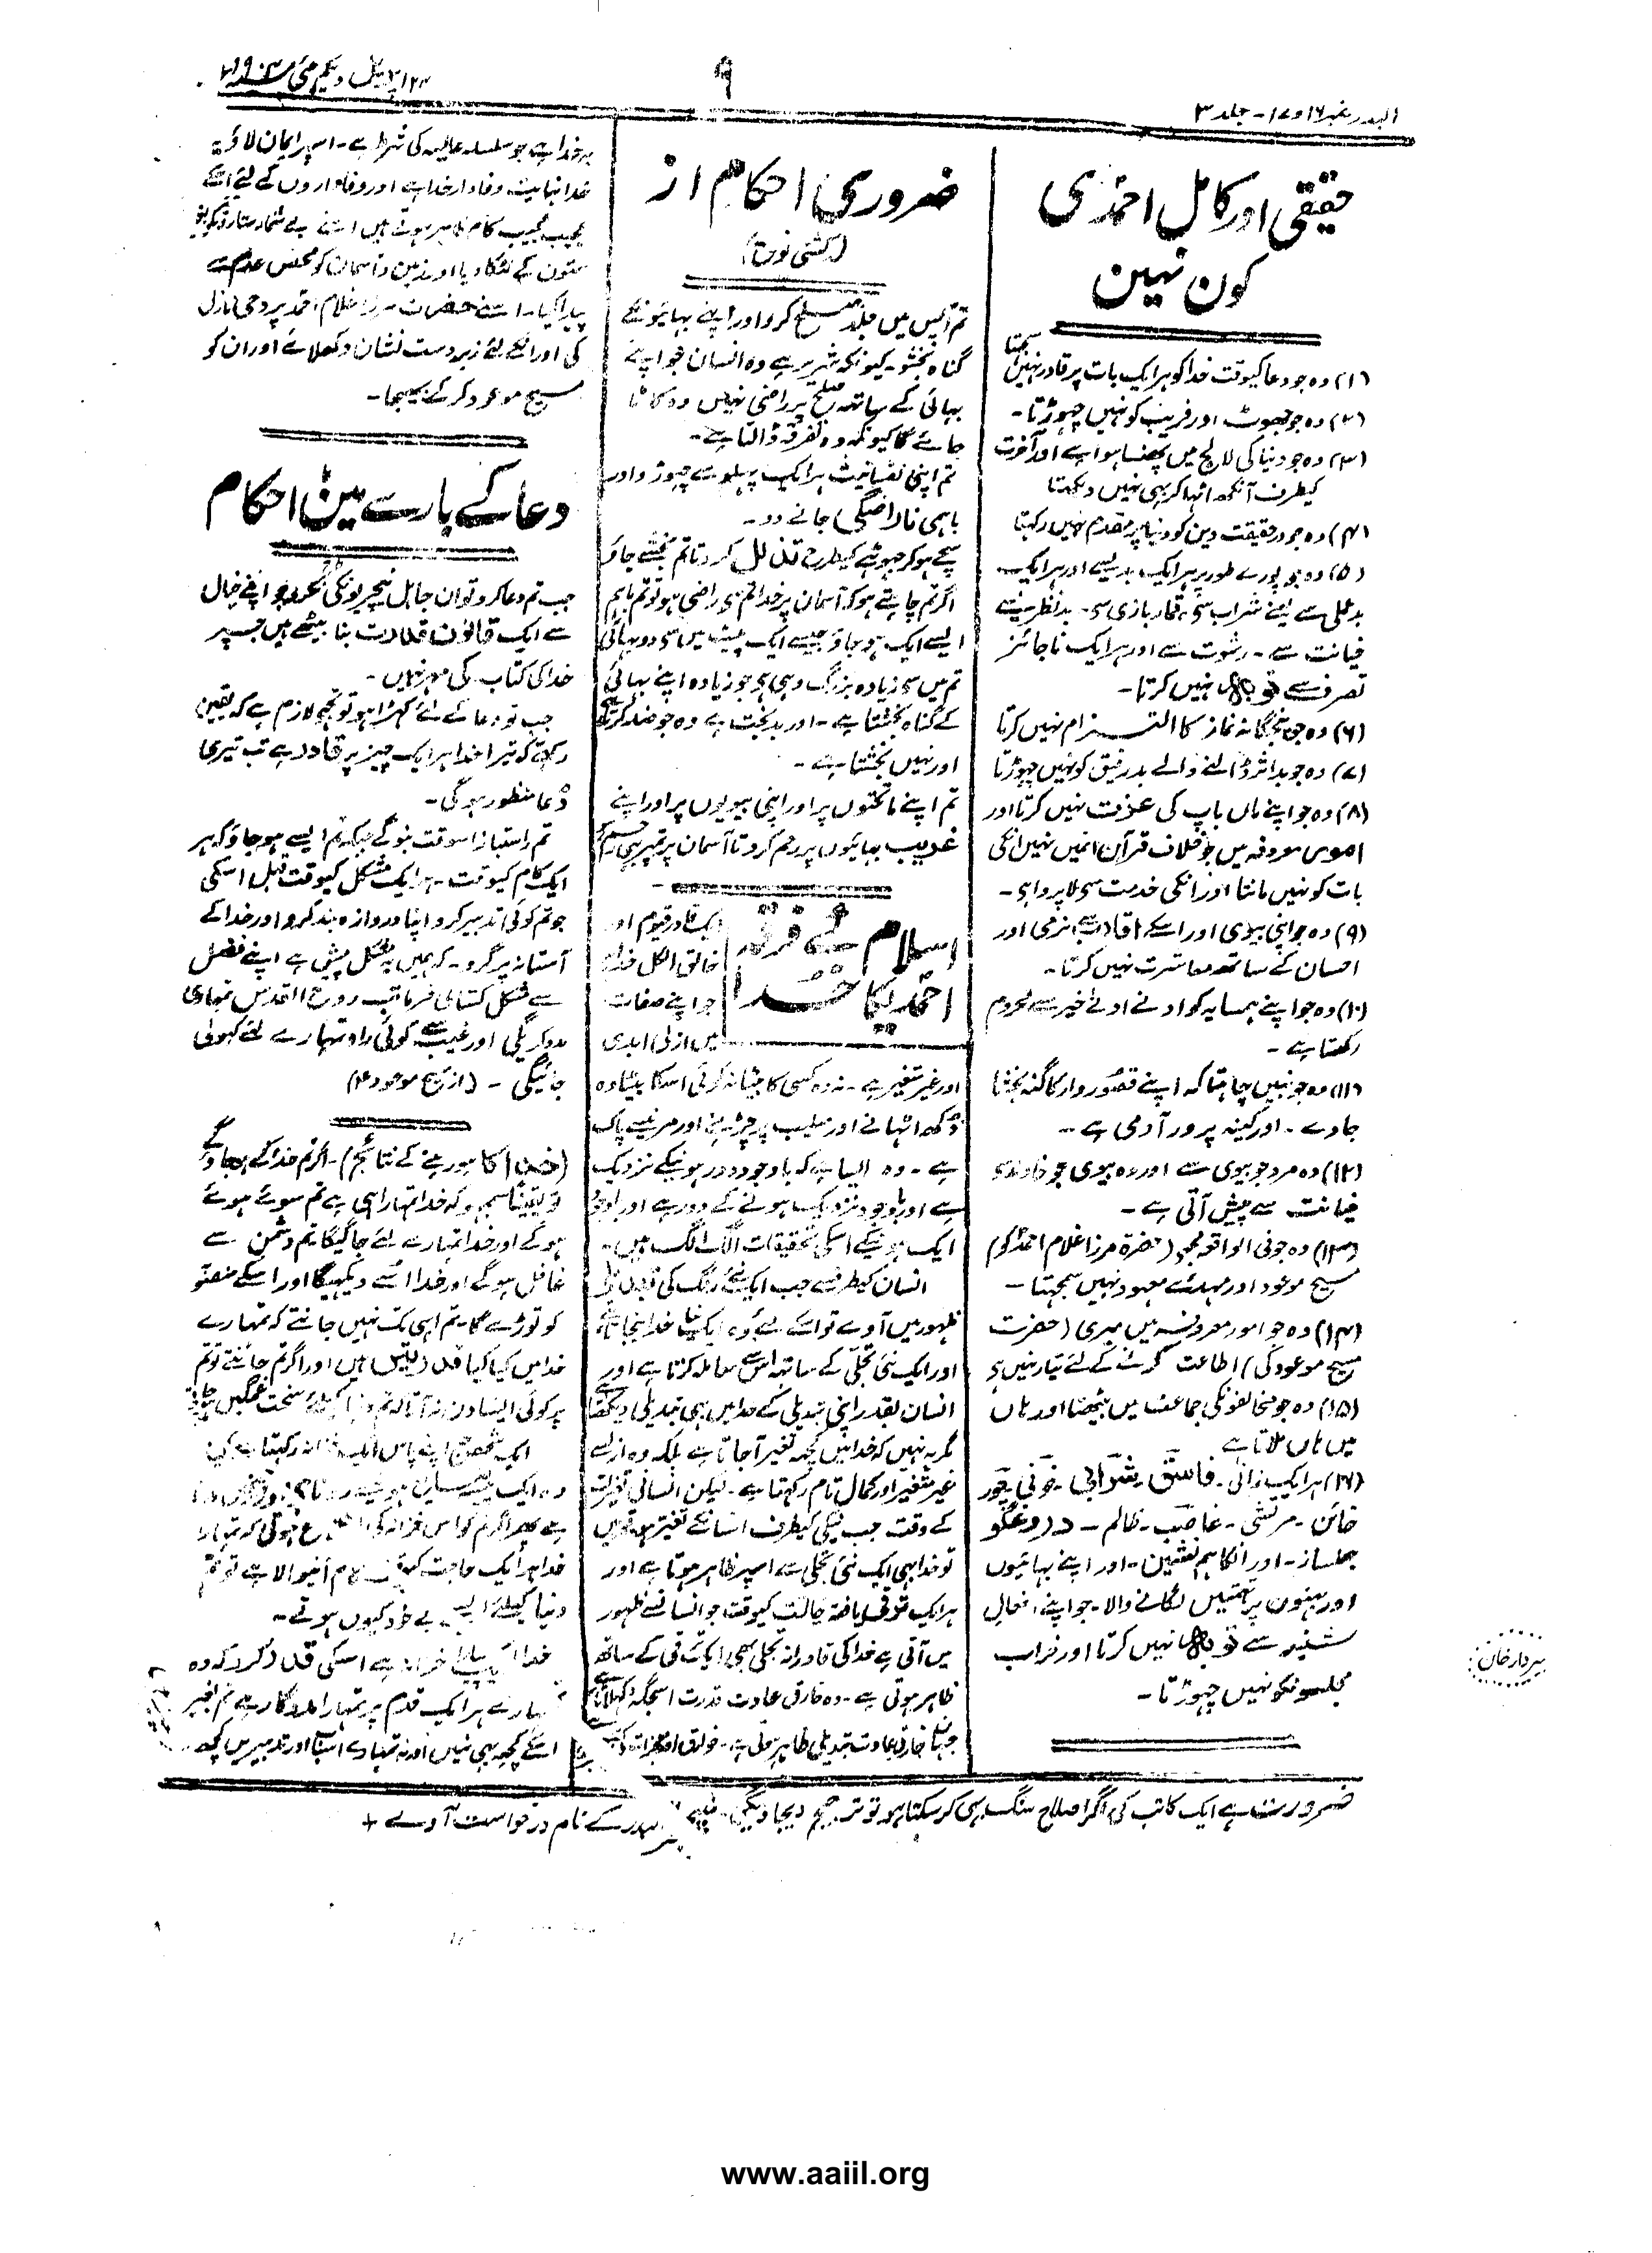 البدر نمبر ۱۶ و ۱۷ - جلد ۳
۹
حقیقی اور کامل احمدی
کون نہین
(۱) وہ جو دعا کیوقت خدا کو ہر ایک بات پر قادر نہیں سمجہتا
(۲) وہ جو جھوٹ اور فریب کو نہیں چہوڑتا -
(۳) وہ جو دنیا کی لالچ میں پھنسا ہوا ہے اور آخرت
کیطرف آنکھ اٹہا کر بہی نہیں دیکہتا
(۴) وہ جو درحقیقت دین کو دنیا پر مقدم نہیں رکہتا
(۵) وہ جو پورے طور پر ہر ایک بدی سے اور ہر ایک
بد عملی سے یعنے شراب سے، قمار بازی سے - بد نظری سے
خیانت سے - رشوت سے اور ہر ایک ناجائز
تصرف سے توبہ نہیں کرتا -
(۶) وہ جو پنجگانہ نماز کا التزام نہیں کرتا
(۷) وہ جو بد اثر ڈالنے والے بد رفیق کو نہیں چہوڑتا
(۸) وہ جو اپنے ماں باپ کی عزت نہیں کرتا اور
امور معروفہ میں جو خلاف قرآن نہیں ہیں انکی
بات کو نہیں مانتا اور انکی خدمت سے لاپروا ہے -
(۹) وہ جو اپنی بیوی اور اسکے اقارب سے نرمی اور
احسان کے ساتھ معاشرت نہیں کرتا -
(۱۰) وہ جو اپنے ہمسایہ کو ادنے ادنے خیر سے محروم
رکھتا ہے -
(۱۱) وہ جو نہیں چاہتا کہ اپنے قصور وار کا گنہ بخشا
جاوے - اور کینہ پرور آدمی ہے --
(۱۲) وہ مرد جو بیوی سے اور وہ بیوی جو خاوند سے
خیانت سے پیش آتی ہے -
(۱۳) وہ جو فی الواقعہ مجھے (حضرۃ مرزا غلام احمد کو)
مسیح موعود اور مہدئے معہود نہیں سمجہتا -
(۱۴) وہ جو امور معروفہ میں میری (حضرت
مسیح موعود کی) اطاعت کرنے کے لئے تیار نہیں ہے
(۱۵) وہ جو مخالفونکی جماعت میں بیٹھتا اور ہاں
میں ہاں ملاتا ہے
(۱۶) ہر ایک زانی - فاسق - شرابی - خونی - چور
خائن - مرتشی - غاصب - ظالم - دروغگو
جعلساز - اور انکا ہم نشین - اور اپنے بہائیوں
اور بہنوں پر تہمتیں لگانے والا - جو اپنے افعال
شنیعہ سے توبہ نہیں کرتا اور خراب
مجلسونکو نہیں چہوڑتا -
ضروری احکام از
(کشتی نوح)
تم آپس میں جلد صلح کرو اور اپنے بہائیونکے
گناہ بخشو - کیونکہ شریر ہے وہ انسان جو اپنے
بہائی کے ساتھ صلح پر راضی نہیں وہ کاٹا
جائے گا کیونکہ وہ تفرقہ ڈالتا ہے -
تم اپنی نفسانیت ہر ایک پہلو سے چہوڑ دو اور
باہمی ناراضگی جانے دو -
سچے ہو کر جھوٹے کیطرح تذلل کرو تا تم بخشے جاؤ
اگر تم چاہتے ہو کہ آسمان پر خدا تم سے راضی ہو تو تم باہم
ایسے ایک ہو جاؤ جیسے ایک پیٹ میں سے دو بہائی
تم میں سے زیادہ بزرگ وہی ہے جو زیادہ اپنے بہائی
کے گناہ بخشتا ہے - اور بدبخت ہے وہ جو ضد کرتا ہے
اور نہیں بخشتا ہے -
تم اپنے ماتحتوں پر اور اپنی بیویوں پر اور اپنے
غریب بہائیوں پر رحم کرو تا آسمان پر تمپر بہی رحم ہو
اسلام کے فرقہ
احمدیکا خدا
ایک قادر قیوم اور
خالق الکل خدا ہے
جو اپنے صفات
میں ازلی ابدی
اور غیر متغیر ہے - نہ وہ کسی کا بیٹا نہ کوئی اسکا بیٹا وہ
دکھ اٹہانے اور صلیب پر چڑہنے اور مرنیسے پاک
ہے - وہ ایسا ہے کہ باوجود دور ہونیکے نزدیک
ہے اور باوجود نزدیک ہونے کے دور ہے اور باوجود
ایک ہونیکے اسکی تجلیات الگ الگ ہیں -
انسان کیطرف سے جب ایک نئے رنگ کی تبدیلی
ظہور میں آوے تو اسکے لئے وہ ایک نیا خدا بنجاتا ہے
اور ایک نئی تجلی کے ساتھ اس سے معاملہ کرتا ہے اور
انسان بقدر اپنی تبدیلی کے خدا میں بہی تبدیلی دیکھتا
مگر یہ نہیں کہ خدا میں کچہہ تغیر آجاتا ہے بلکہ وہ ازل سے
غیر متغیر اور کمال تام رکہتا ہے - لیکن انسانی تغیرات
کے وقت جب نیکی کیطرف انسانکے تغیر ہوتے ہیں
تو خدا بہی ایک نئی تجلی سے اسپر ظاہر ہوتا ہے اور
ہر ایک ترقی یافتہ حالت کیوقت جو انسان سے ظہور
میں آتی ہے خدا کی قادرانہ تجلی بھی ایک ترقی کے ساتھ
ظاہر ہوتی ہے - وہ خارق عادت قدرت اسجگہ دکہلاتا ہے
جہاں خارق عادت تبدیلی ظاہر ہوتی ہے - خوارق اور معجزات کی
یہ خدا ہے جو سلسلہ عالیہ کی شرط ہے - اسپر ایمان لاؤ
خدا نہایت وفادار خدا ہے اور وفاداروں کے لئے اسکے
عجیب عجیب کام ظاہر ہوتے ہیں اسنے بے شمار ستارونکو بغیر
ستون کے لٹکا دیا اور زمین و آسمان کو محض عدم سے
پیدا کیا - اسنے حضرت مرزا غلام احمد پر وحی نازل
کی اور انکے لئے زبردست نشان دکھلائے اور ان کو
مسیح موعود کرکے بھیجا -
دعا کے بارے مین احکام
جب تم دعا کرو تو ان جاہل نیچریونکی نکرو جو اپنے خیال
سے ایک قانون قدرت بنا بیٹھے ہیں جسپر
خدا کی کتاب کی مہر نہیں -
جب تو دعا کے لئے کہڑا ہو تو تجھے لازم ہے کہ یقین
رکہے کہ تیرا خدا ہر ایک چیز پر قادر ہے تب تیری
دعا منظور ہوگی -
تم راستباز اسوقت بنوگے جبکہ تم ایسے ہو جاؤ کہ ہر
ایک کام کیوقت - ہر ایک مشکل کیوقت قبل اسکی
جو تم کوئی تدبیر کرو اپنا دروازہ بند کرو اور خدا کے
آستانہ پر گرو - کہ ہمیں یہ مشکل پیش ہے اپنے فضل
سے مشکل کشائی فرما تب روح القدس تمہاری
مدد کریگی اور غیب سے کوئی راہ تمہارے لئے کہولی
جائیگی - (از مسیح موعود ؑ)
(خدا کا ہو رہنے کے نتائج) - اگر تم خدا کے ہو جاؤ گے
تو یقیناً سمجہو کہ خدا تمہارا ہی ہے تم سوئے ہوئے
ہوگے اور خدا تمہارے لئے جاگیگا تم دشمن سے
غافل ہوگے اور خدا اسے دیکہیگا اور اسکے منصوبے
کو توڑے گا تم ابہی تک نہیں جانتے کہ تمہارے
خدا میں کیا کیا قدرتیں ہیں اور اگر تم جانتے تو تم
پر کوئی ایسا دن نہ آتا کہ تم دنیا کیلئے سخت غمگین ہو جاتے
ایک شخص اپنے پاس ایک خزانہ رکہتا ہے کیا
وہ ایک پیسہ
ہے پھر اگر تم کو اس خزانہ کی اطلاع ہوتی کہ تمہارا
خدا ہر ایک حاجت کیوقت کام آنیوالا ہے تو تم
دنیا کیلئے ایسے بے خود کیوں ہوتے -
خدا ایک پیارا خزانہ ہے اسکی قدر کرو کہ وہ
تمہارے ہر ایک قدم پر تمہارا مددگار ہے تم بغیر
اسکے کچہہ بہی نہیں اور نہ تمہارے اسباب اور تدبیریں کچھ
ضرورت ہے ایک کاتب کی اگر اصلاح سنگ بہی کر سکتا ہو تو ترجیح دیجاویگی -
کے نام درخواست آوے +
www.aaiil.org